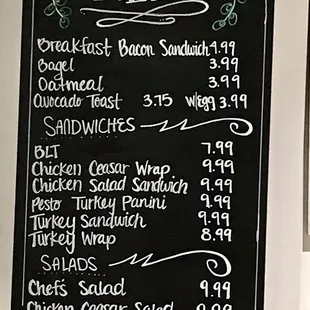 Breakfast Bacon Sandwich 4.99
Bagel 3.99
Oatmeal 3.99
Avocado Toast 3.75 w/Egg 3.99
SANDWICHES
BLT 7.99
Chicken Ceasar Wrap 9.99
Chicken Salad Sandwich 9.99
Pesto Turkey Panini 9.99
Turkey Sandwich 9.99
Turkey Wrap 8.99
SALADS
Chef's Salad 9.99
Chicken Ceasar Salad 9.99